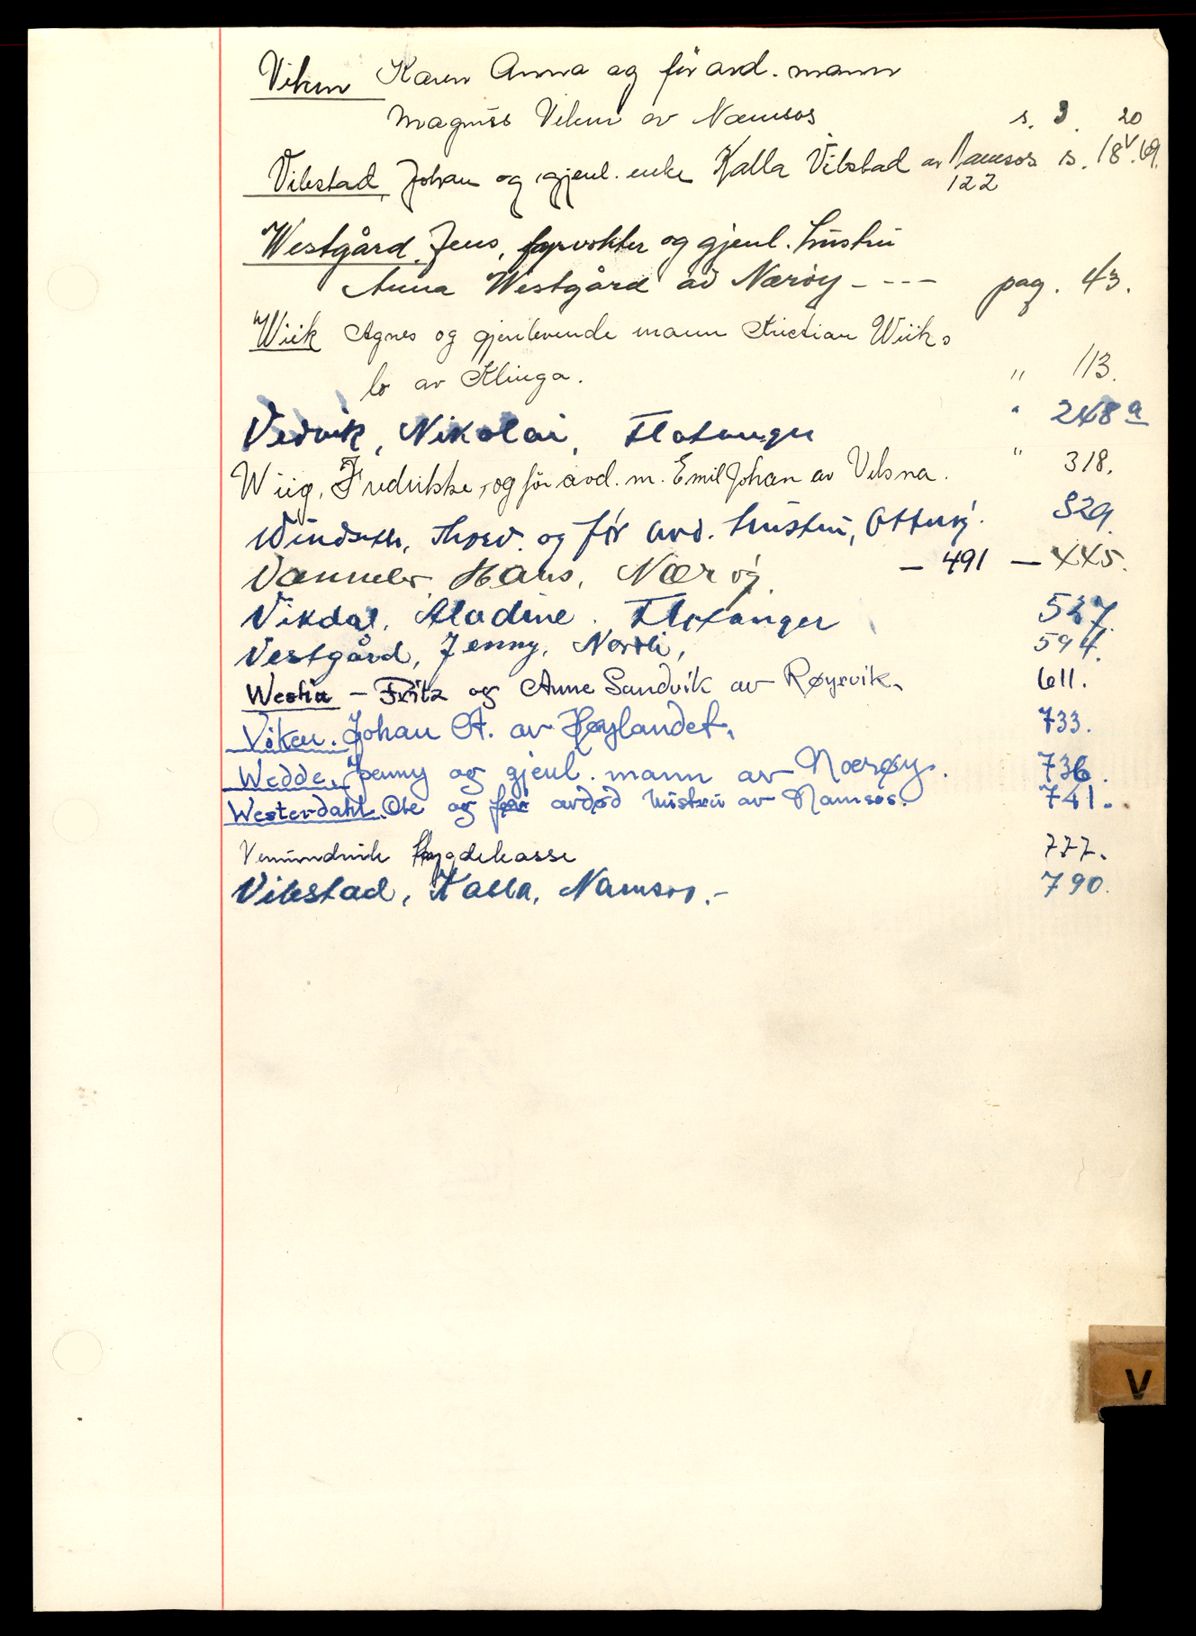 Viken Karen Anna og før avd. mann
Magnus Viken av Namsos s. 3. 20
Vibstad, Johan og gjenl. enke Kalla Vibstad av Namsos s. 18 V. 69.
122
Westgård, Jens, fyrvokter og gjenl. hustru
Anna Westgård av Nærøy - - - - pag. 43.
Wiik Agnes og gjenlevende mann Kristian Wiiks
bo av Klinga. " 113.
Vedvik, Nikolai, Flatanger " 248 a
Wiig, Fredrikke, og før avd. m. Emil Johan av Vikna. " 318.
Windseth, Thorv. og før avd. hustru, Otterøy. 329.
Vannebo, Hans, Nærøy - 491 - 445.
Vikdal, Aladine. Flatanger 527.
Vestgård, Jenny, Nordli, 594.
Westin - Fritz og Anne Sandvik av Røyrvik. 611.
Viken. Johan A. av Høylandet. 733.
Wedde, Jenny og gjenl. mann av Nærøy. 736.
Westerdahl. Ole og før avdød hustru av Namsos. 741.
Vemundvik trygdekasse 777.
Vibstad, Kalla, Namsos.- 790.
V